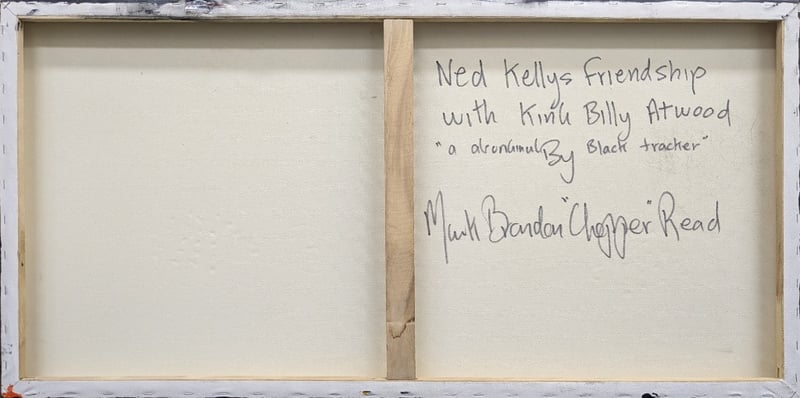 Ned Kellys Friendship
with Kink Billy Atwood
"a By Black tracker"
Mark Brandon "Chopper" Read